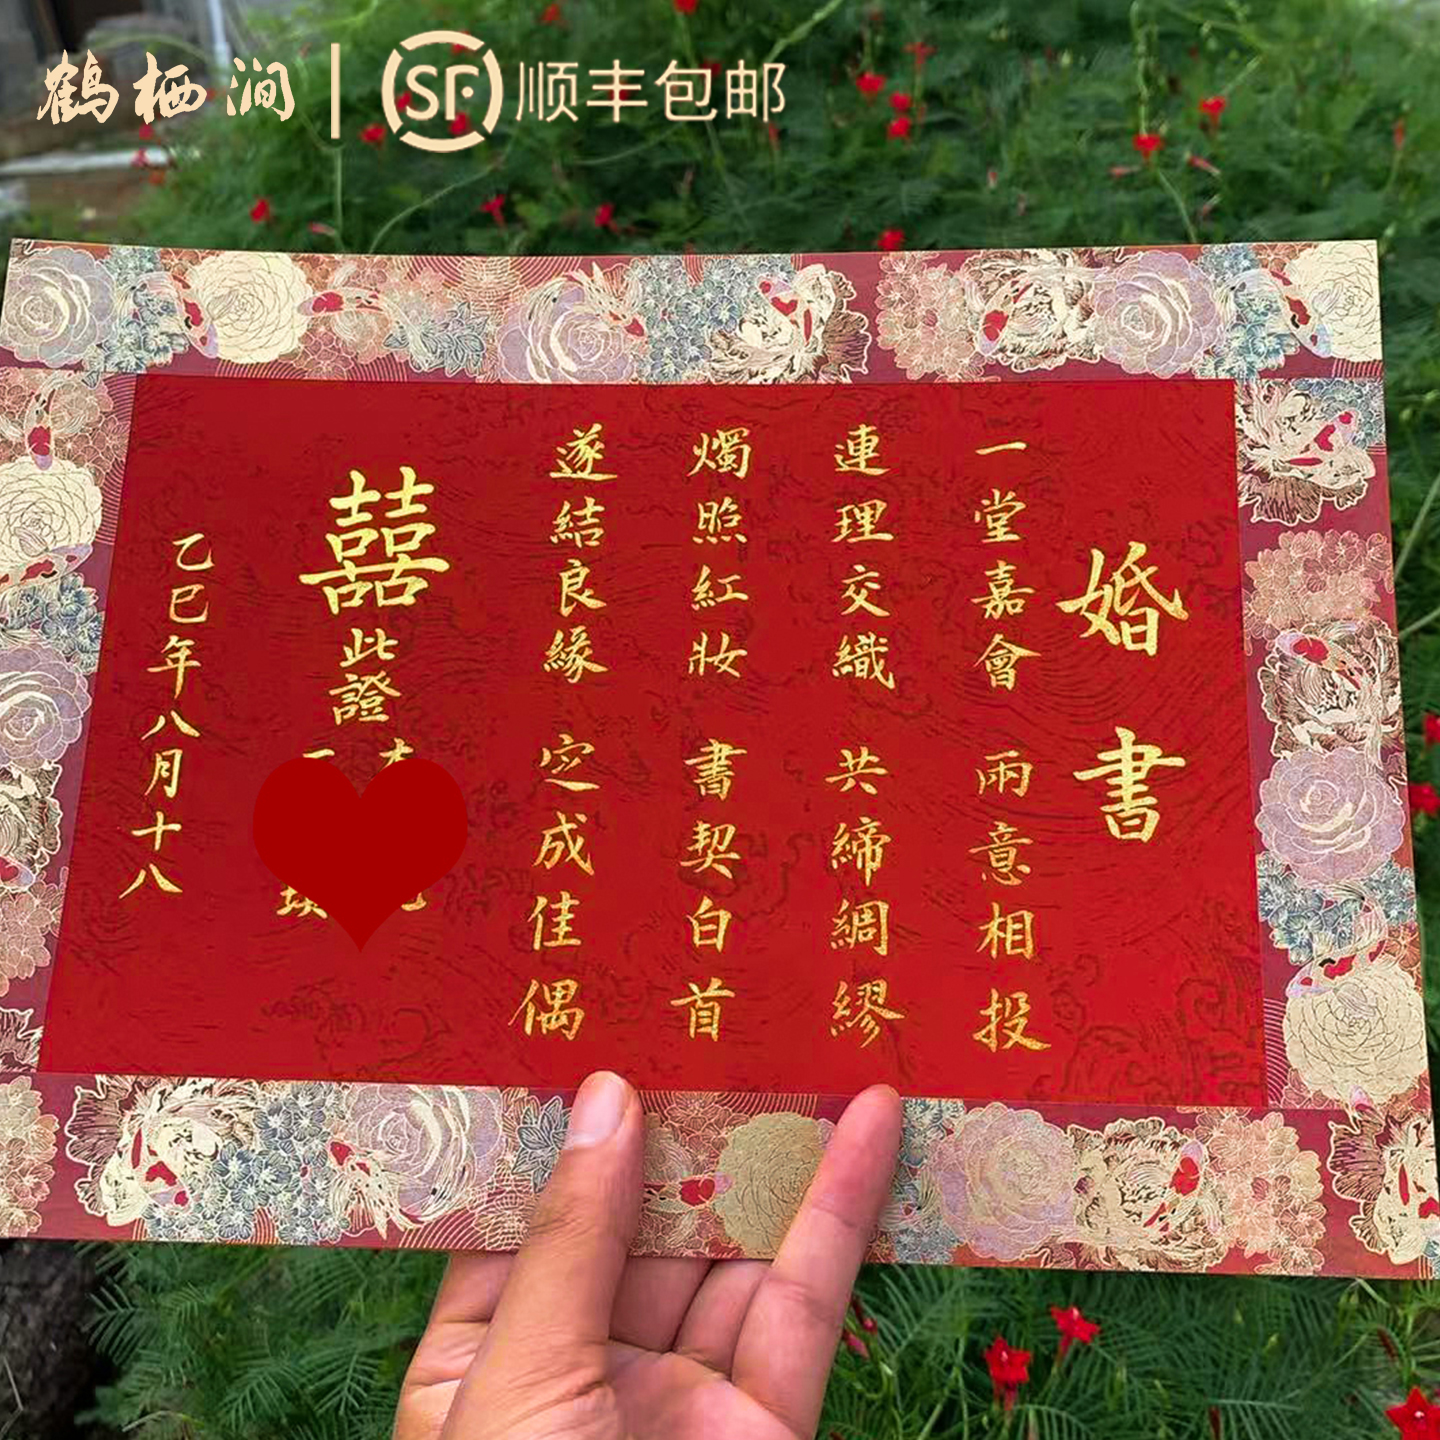 鹤栖涧 SF 顺丰包邮
婚書
一堂嘉會 兩意相投
連理交織 共締綢繆
燭照紅妝 書契白首
遂結良緣 定成佳偶
囍此證
乙巳年八月十八